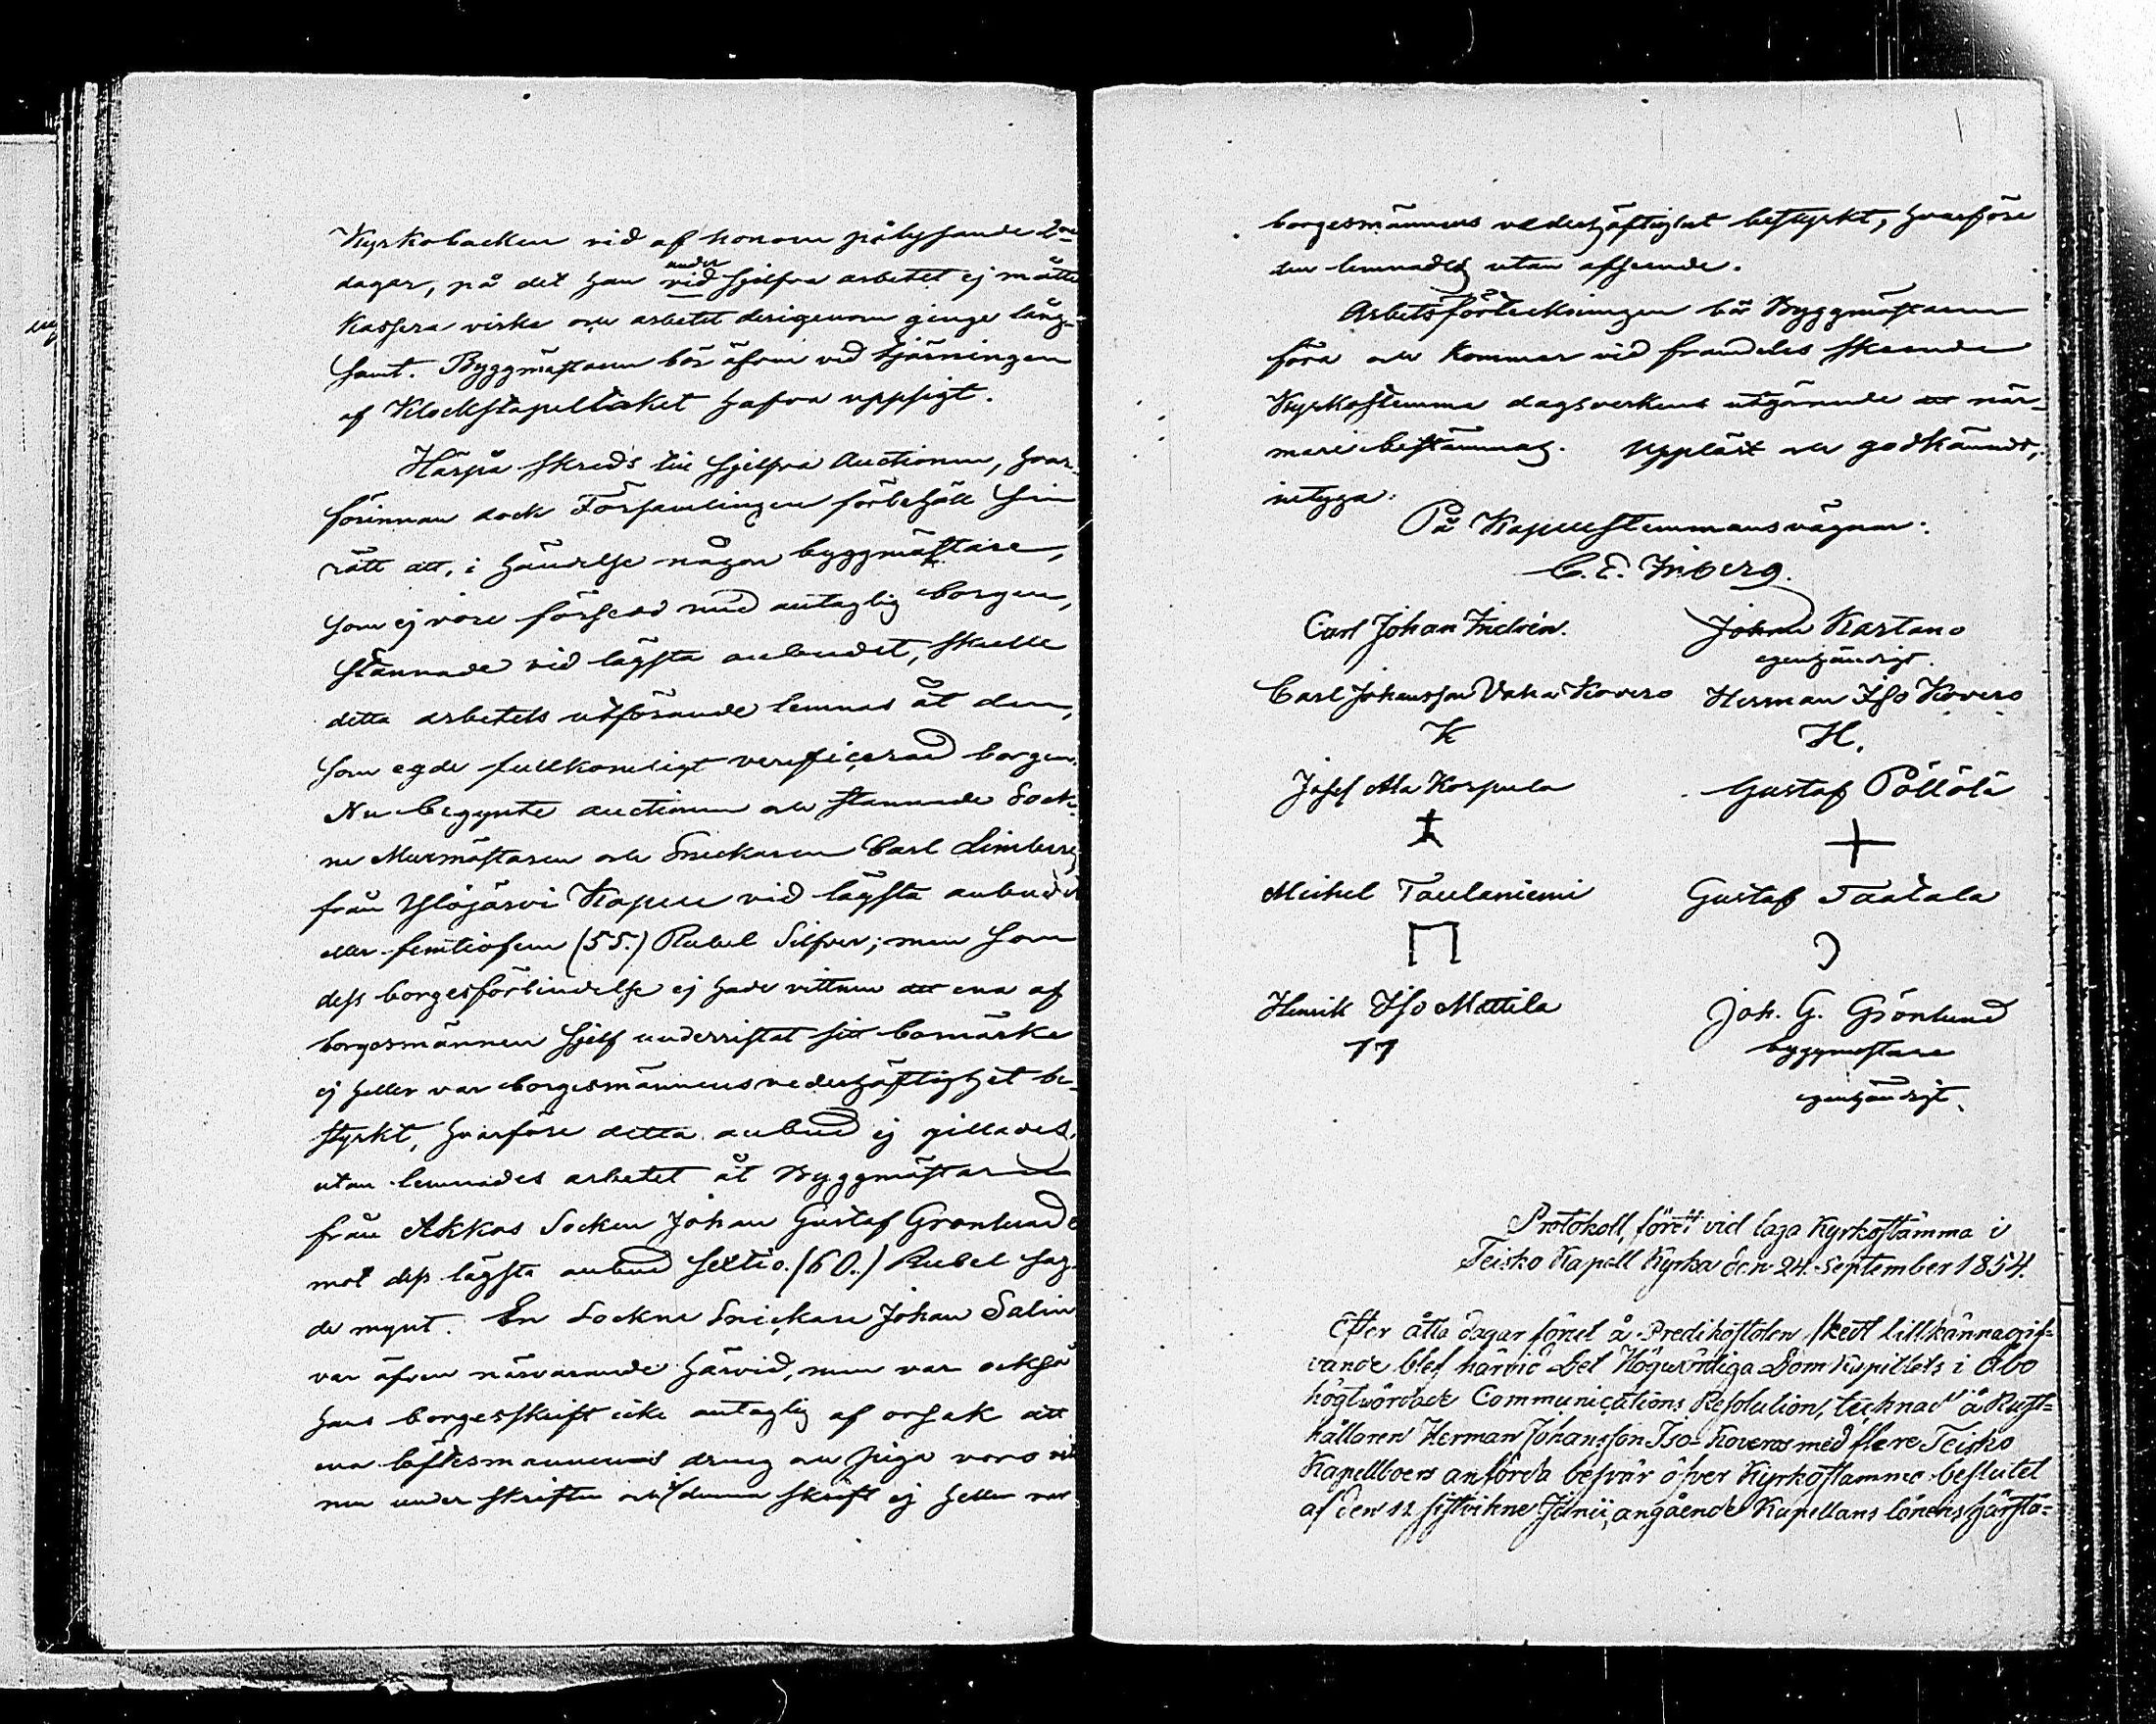 Kyrkobacken vid af honom pålysande 2ne
dagar, på det han under vid sjelfva arbetet ej måtte
kassera virke och arbetet derigenom ginge lång-
samt. Byggmästaren bör äfven vid tjärningen
af Klockstapeltaket hafva uppsigt.
Härpå skreds till sjelfva Auctionen, hvar-
förinnan dock Församlingen förbehöll sin
rätt att, i händelse någon byggmästare,
som ej vore försedd med antaglig borgen,
stannade vid lägsta anbudet, skulle
detta arbetets utförande lemnas åt den,
som egde fullkomligt verificerad borgen.
Nu begynte auctionen och stannade Sock-
ne Murmästaren och Snickaren Carl Limberg
från Ylöjärvi Kapell vid lägsta anbudet
eller femtiofem (55.) Rubel Silfver; men som
dess borgesförbindelse ej hade vittnen att ena af
borgesmännen sjelf underristat sitt bomärke
ej heller var borgesmännens vederhäftighet be-
styrkt, hvarföre detta anbud ej gillades,
utan lemnades arbetet åt Byggmästaren
från Akkas Socken Johan Gustaf Grönlund
mot dess lägsta anbud sextio (60.) Rubel sag-
de mynt. En Sockne Snickare Johan Salin
var äfven närvarande härvid, men var också
hans borgesskrift icke antaglig af orsak att
ena löftesmannens dräng och piga voro vitt-
nen under skriften och i denna skrift ej heller var
borgesmännens vederhäftighet bestyrkt, hvarföre
den lemnades utan afseende.
Arbetsförteckningen bör Byggmästaren
föra och kommer vid framdeles skeende
Kyrkostemma dagsverkens utgörande att när-
mare bestämmas. Uppläst och godkänndt,
intyga:
På Kapellstemmans vägnar:
C. E. Inberg.
Carl Johan Indrén. Johan Kartano
egenhändigt.
Carl Johansson Vaha Kovero Herman Iso Kovero
K H.
Josef Ala Korpula Gustaf Pöllölä
Michel Taulaniemi Gustaf Taatala
Henrik Iso Mattila Joh. G. Grönlund
11 byggmästare
egenhändigt.
Protokoll, fördt vid laga Kyrkostämma i
Teisko Kapell Kyrka den 24. September 1854.
Efter åtta dagar förut å Predikostolen skedt tillkännagif-
vande blef härvid Det Högwördiga Dom Kapitlets i Åbo
högtvördade Communications Resolution, tecknad å Rust-
hållaren Herman Johansson Iso-Koveros med flere Teisko
Kapellboers anförda besvär öfver Kyrkostämmo beslutet
af den 12 sistvikne Junii, angående Kapellans lönens härstä-